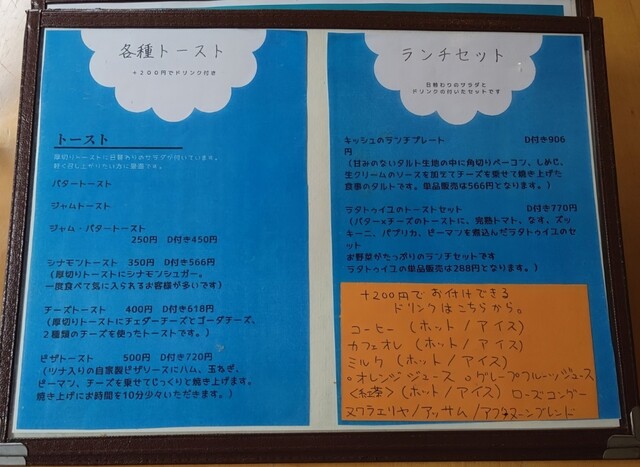 各種トースト
+200円でドリンク付き
トースト
厚切りトーストに日替わりのサラダが付いています。
軽く召し上がりたい方に最適です。
バタートースト
ジャムトースト
ジャム・バタートースト
250円 D付き450円
シナモントースト 350円 D付き566円
(厚切りトーストにシナモンシュガー。
一度食べて気に入られるお客様が多いです)
チーズトースト 400円 D付き618円
(厚切りトーストにチェダーチーズとゴーダチーズ、
2種類のチーズを使ったトーストです。)
ピザトースト 500円 D付き720円
(ツナ入りの自家製ピザソースにハム、玉ねぎ、
ピーマン、チーズを乗せてじっくりと焼き上げます。
焼き上げにお時間を10分少々いただきます。)
ランチセット
日替わりのサラダと
ドリンクの付いたセットです
キッシュのランチプレート D付き906
円
(甘みのないタルト生地の中に角切りベーコン、しめじ、
生クリームのソースを加えてチーズを乗せて焼き上げた
食事のタルトです。単品販売は566円となります。)
ラタトゥイユのトーストセット D付き770円
(バター×チーズのトーストに、完熟トマト、なす、ズッ
キーニ、パプリカ、ピーマンを煮込んだラタトゥイユのセ
ット
お野菜がたっぷりのランチセットです
ラタトゥイユの単品販売は288円となります。)
+200円でお付けできる
ドリンクはこちらから。
コーヒー(ホット/アイス)
カフェオレ(ホット/アイス)
ミルク(ホット/アイス)
。オレンジジュース 。グレープフルーツジュース
<紅茶>(ホット/アイス) ローズコンゲー
ヌワラエリヤ/アッサム/アフタヌーンブレンド